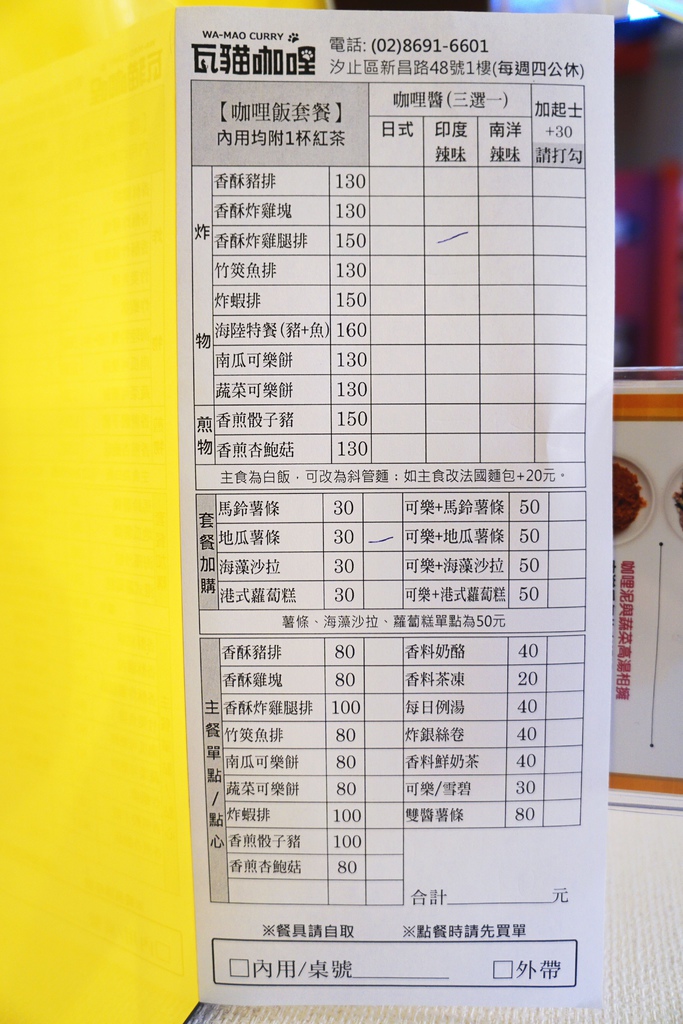 WA-MAO CURRY
瓦貓咖哩
電話: (02)8691-6601
汐止區新昌路48號1樓(每週四公休)
【咖哩飯套餐】
內用均附1杯紅茶
咖哩醬(三選一)
日式 印度 辣味 南洋 辣味
加起士 +30 請打勾
炸物
香酥豬排 130
香酥炸雞塊 130
香酥炸雞腿排 150
竹筴魚排 130
炸蝦排 150
海陸特餐(豬+魚) 160
南瓜可樂餅 130
蔬菜可樂餅 130
煎物
香煎骰子豬 150
香煎杏鮑菇 130
主食為白飯，可改為斜管麵；如主食改法國麵包+20元。
套餐加購
馬鈴薯條 30 可樂+馬鈴薯條 50
地瓜薯條 30 可樂+地瓜薯條 50
海藻沙拉 30 可樂+海藻沙拉 50
港式蘿蔔糕 30 可樂+港式蘿蔔糕 50
薯條、海藻沙拉、蘿蔔糕單點為50元
主餐單點/點心
香酥豬排 80 香料奶酪 40
香酥雞塊 80 香料茶凍 20
香酥炸雞腿排 100 每日例湯 40
竹筴魚排 80 炸銀絲卷 40
南瓜可樂餅 80 香料鮮奶茶 40
蔬菜可樂餅 80 可樂/雪碧 30
炸蝦排 100 雙醬薯條 80
香煎骰子豬 100
香煎杏鮑菇 80
合計 元
※餐具請自取 ※點餐時請先買單
□內用/桌號 □外帶
咖哩泥與蔬菜高湯相擁